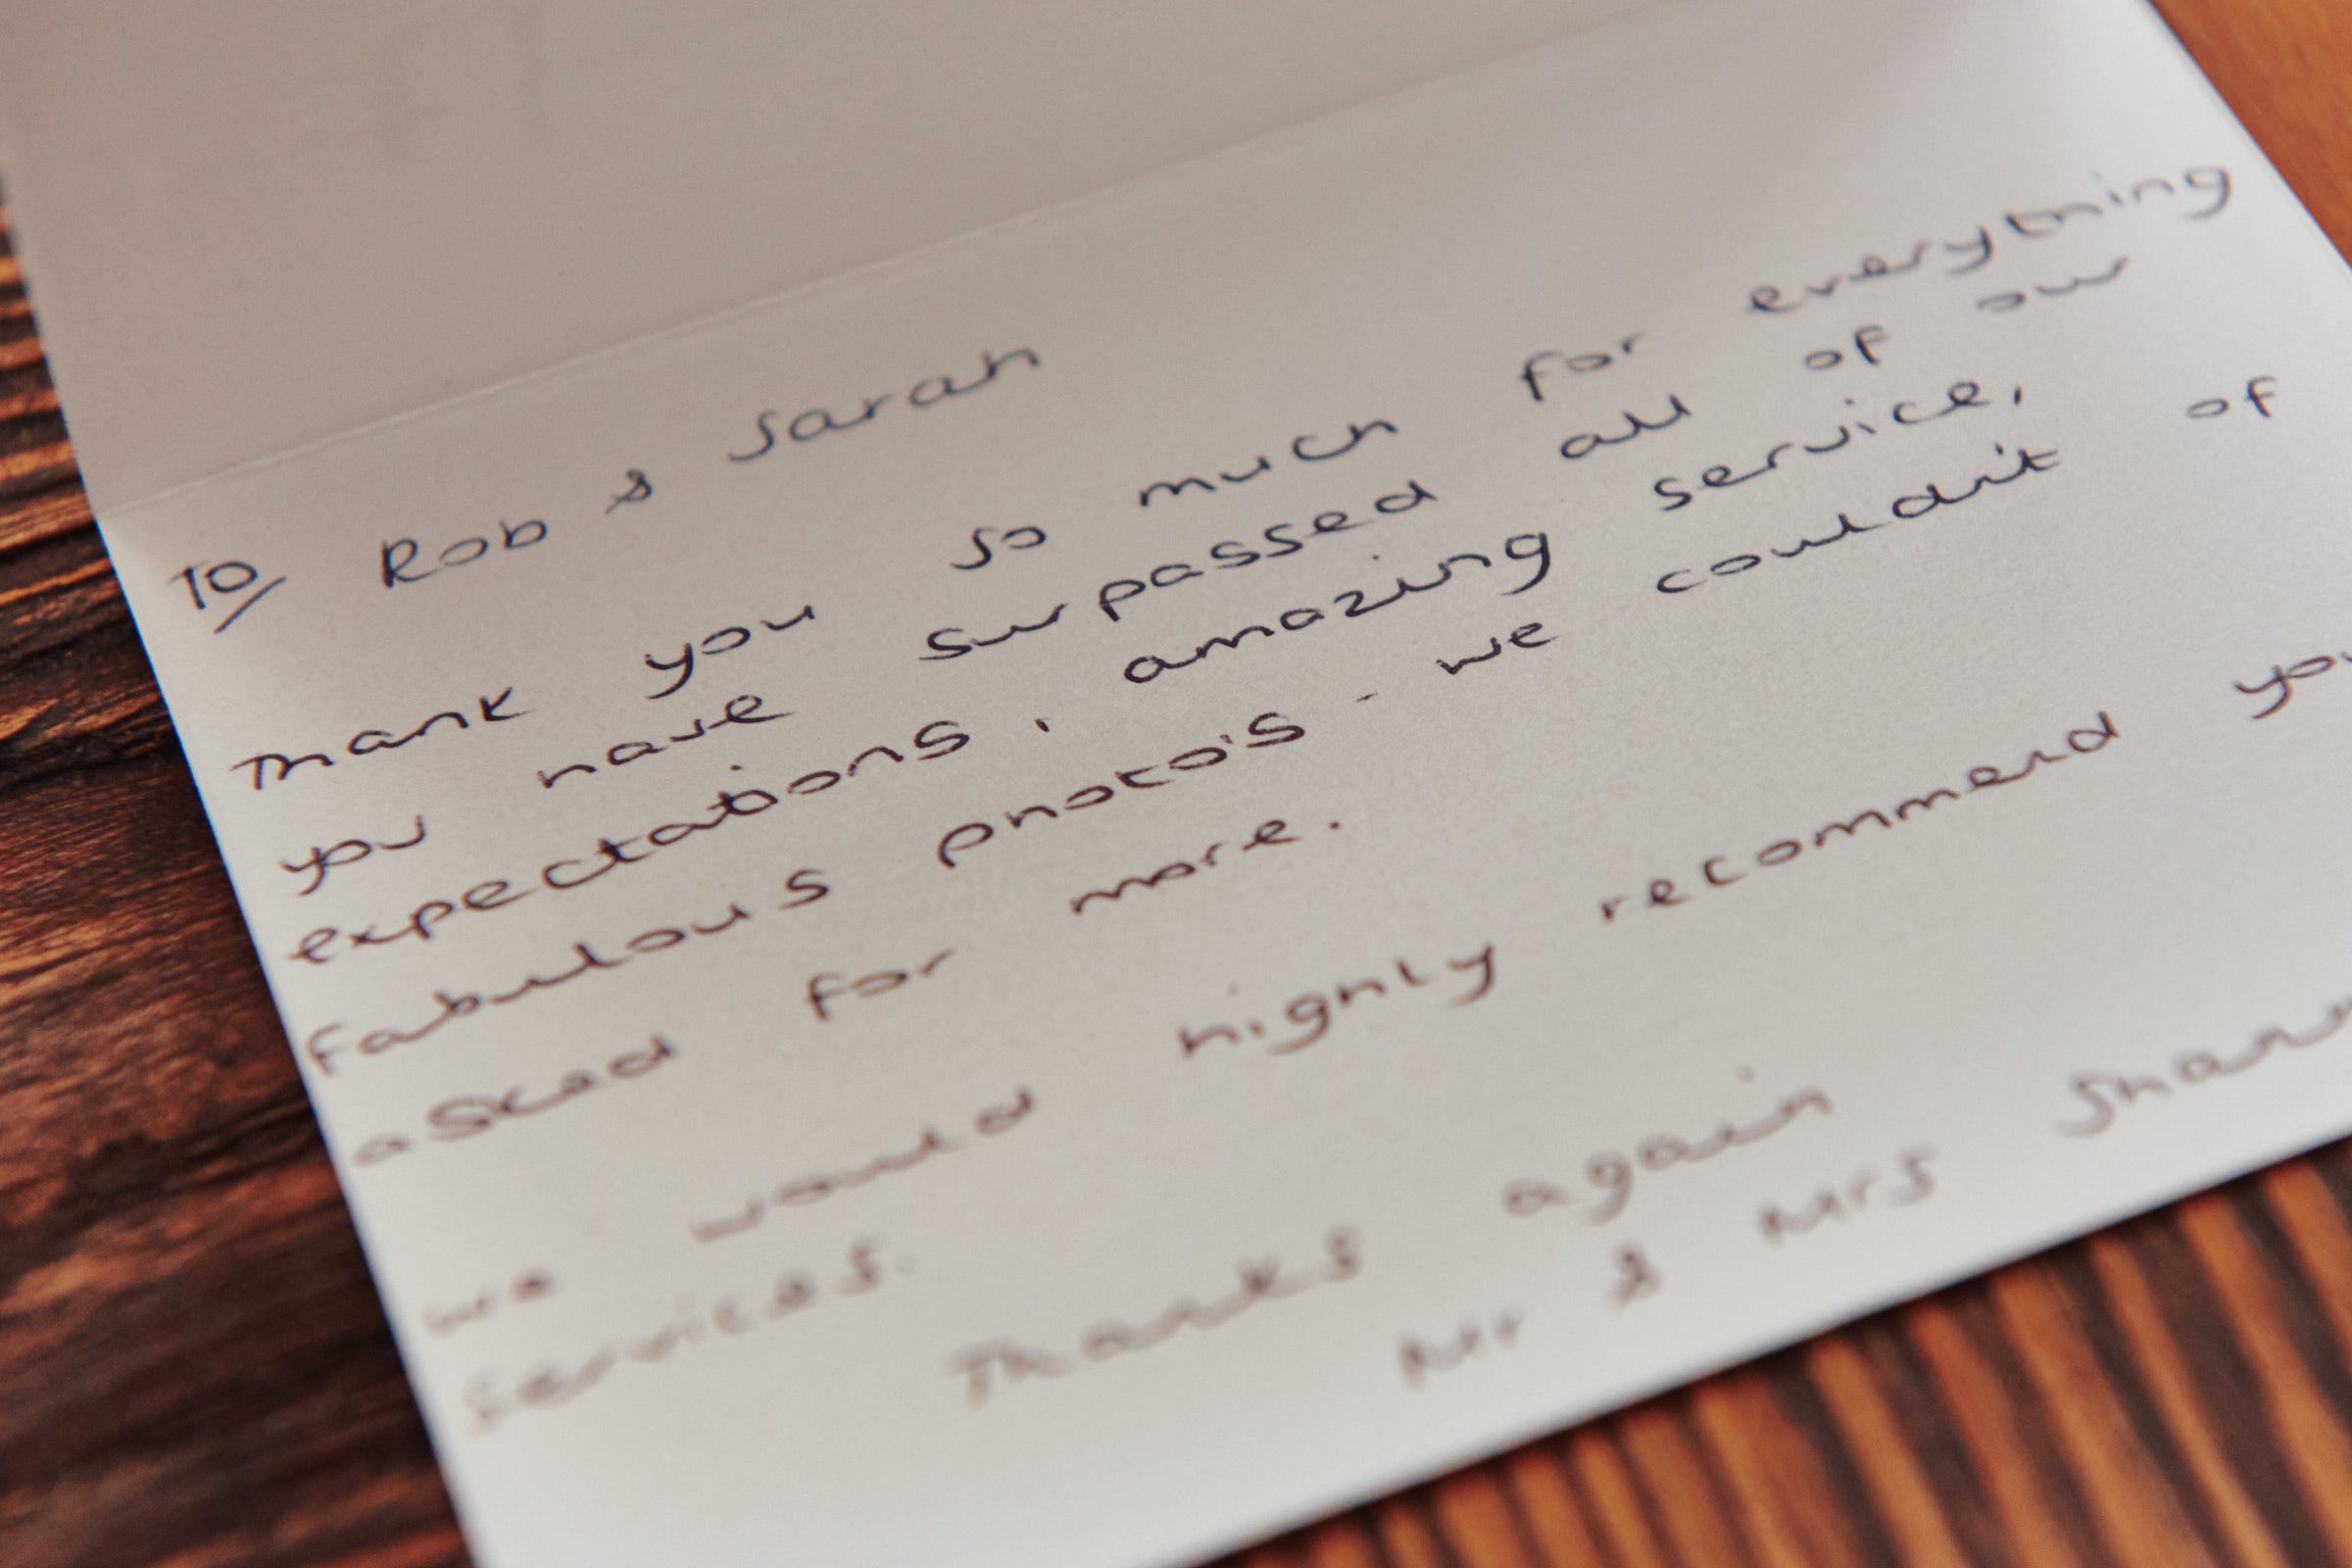 To Rob & Sarah
Thank you so much for everything
you have surpassed all of our
expectations, amazing service,
fabulous photo's - we couldn't of
asked for more.
we would highly recommend
services.
Thanks again
Mr & Mrs